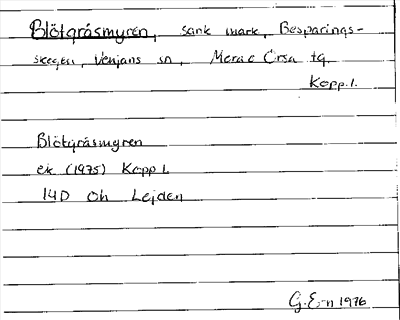 Blötgråsmyren, sank mark, Besparings-
skogen, Venjans sn, Mora o Orsa tg.
Kopp.l.
Blötgråsmyren
ek (1975) Kopp l.
14D Oh Lejden
G. E-n 1976